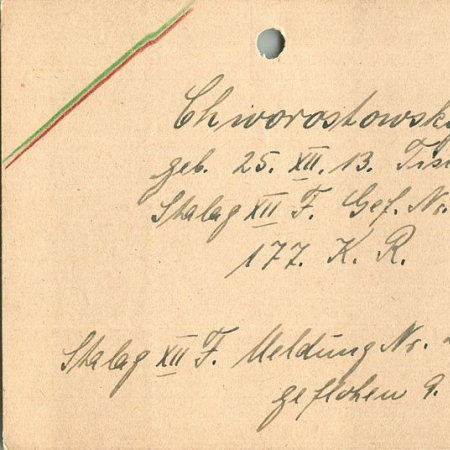 Chworostowsk
geb. 25. XII. 13. Tis
Stalag XII F. Gef. Nr.
177. K. R.
Stalag XII F. Meldung Nr.
geflohen 9.